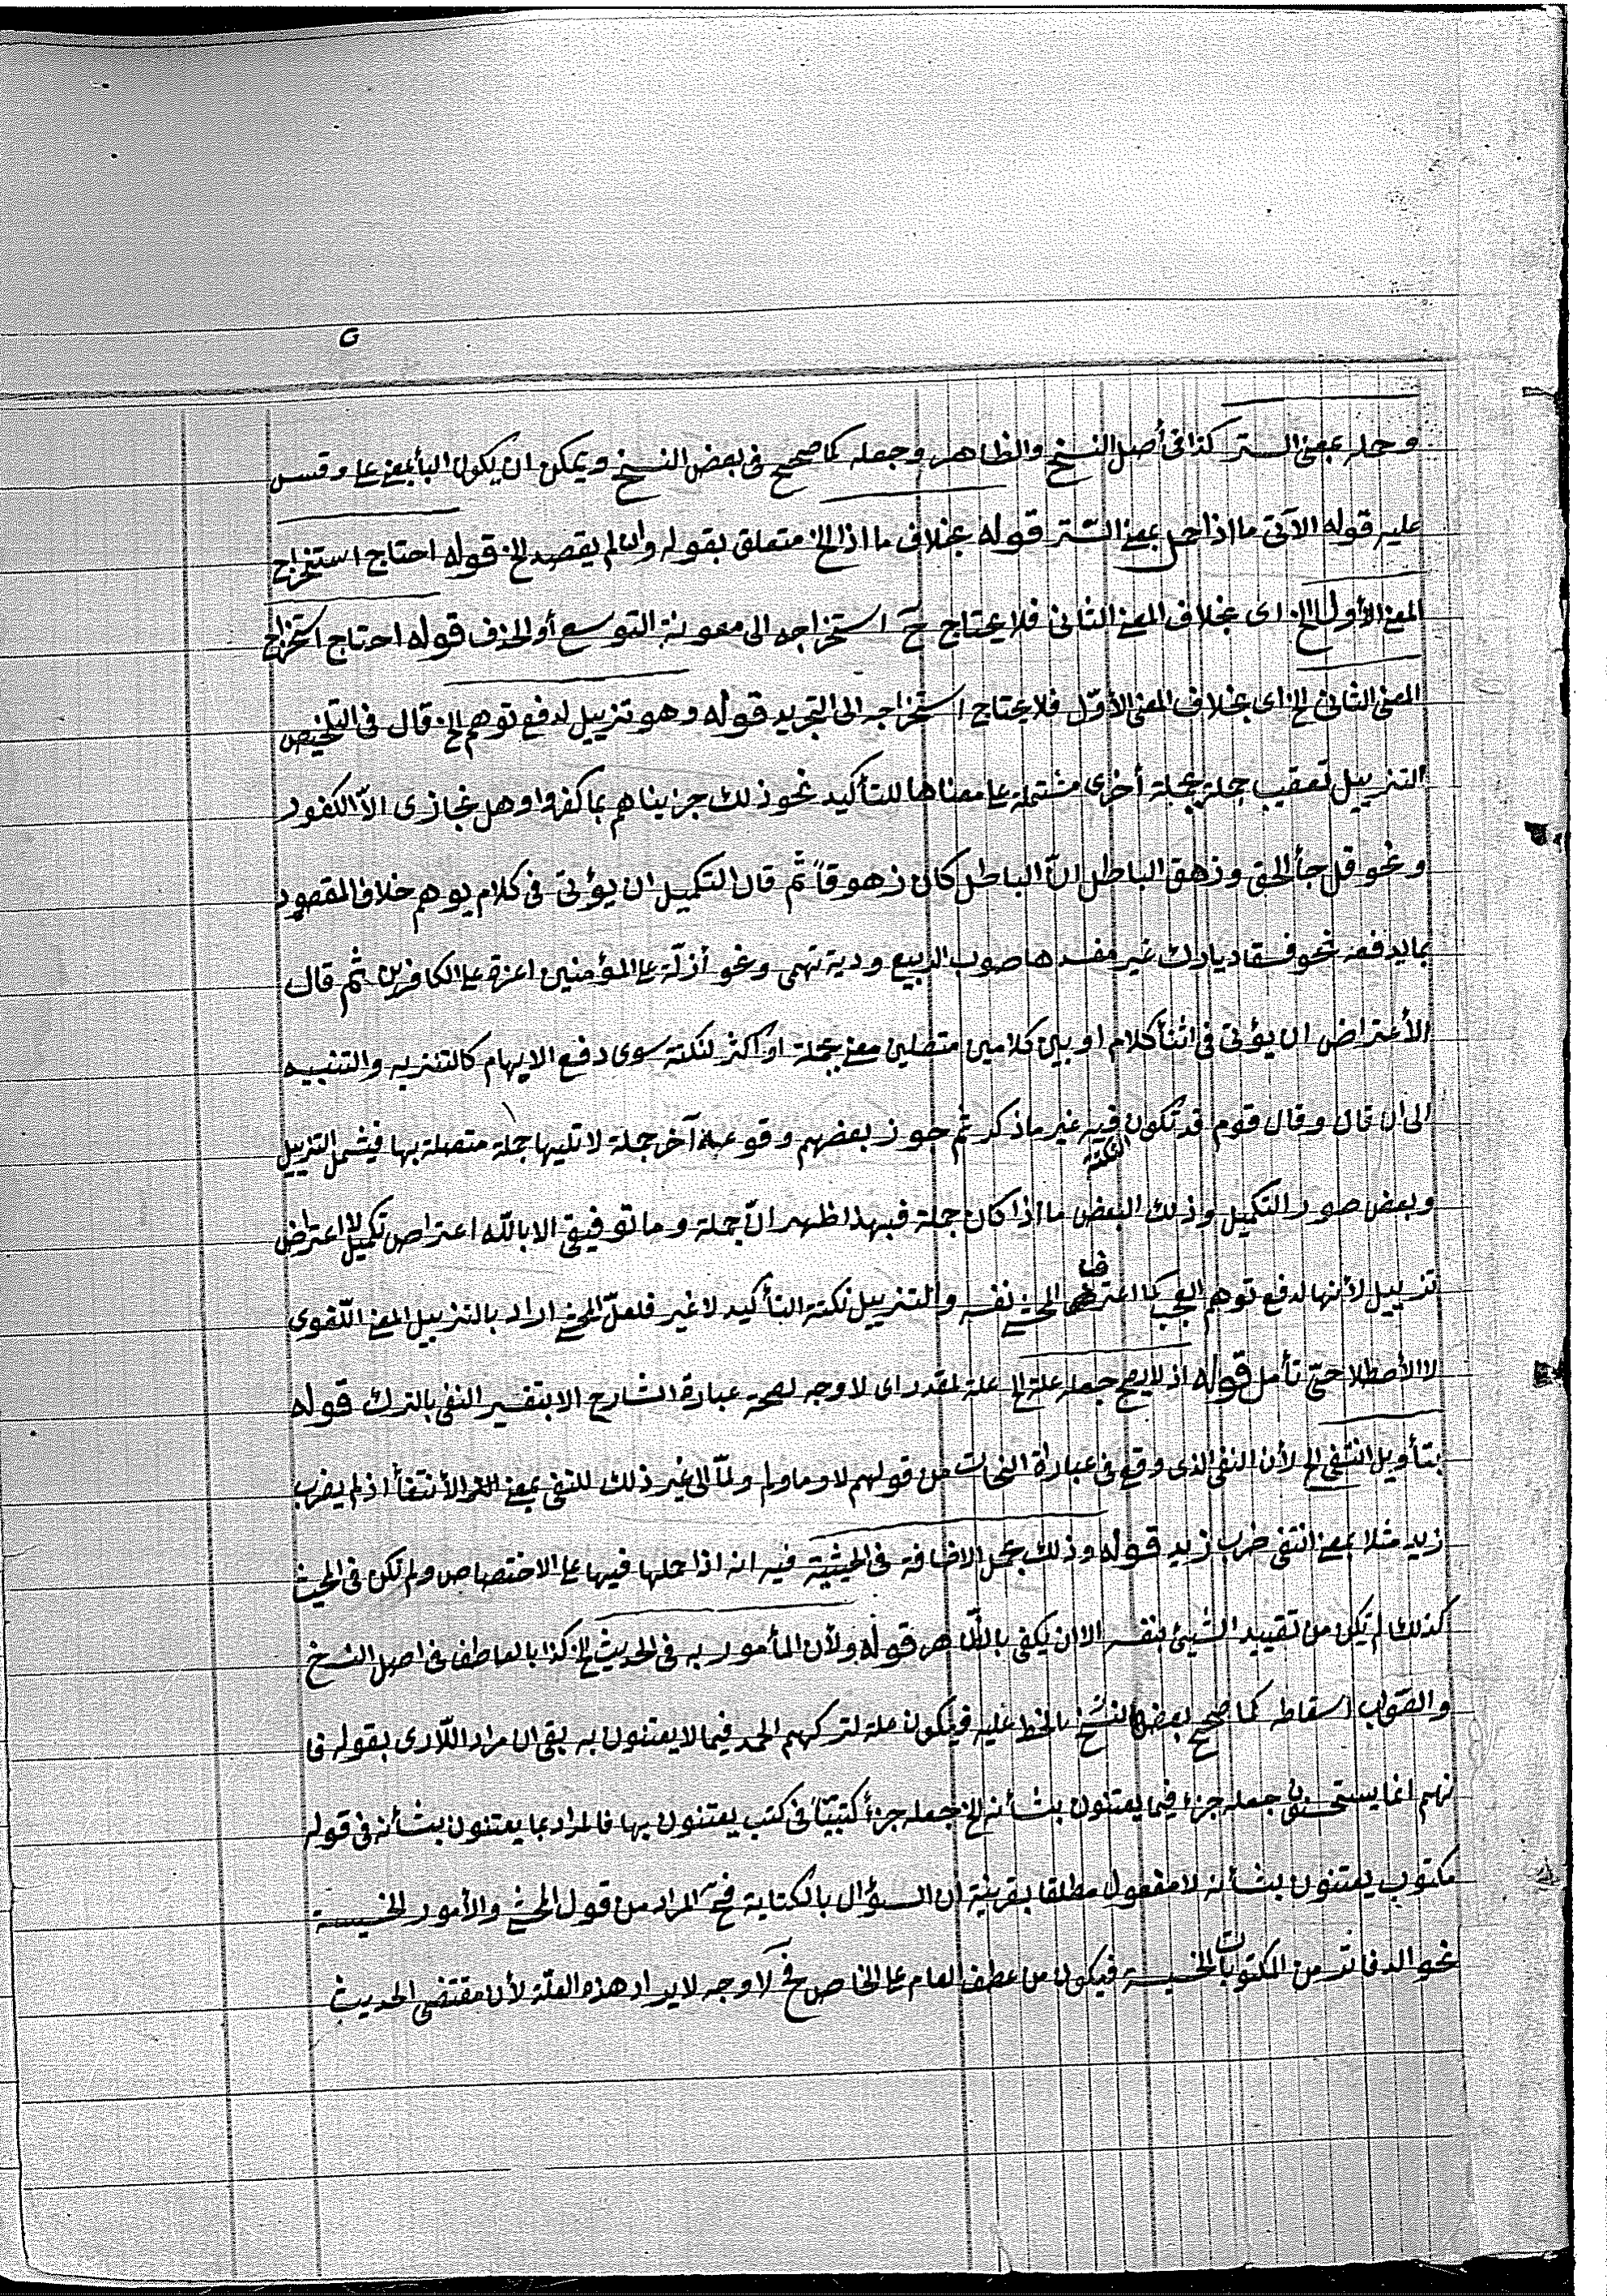 ٥
وحمله بمعنى الستر كذا فى أصل النسخ والظاهر وجعله كما صحح فى بعض النسخ ويمكن ان يكون البأ بمعنى على وقس
عليه قوله الآتى ما اذا حمل بمعنى الستر قوله بخلاف ما اذا الخ متعلق بقوله وان لم يقصد الخ قوله احتاج استخراج
المعنى الأول الخ اى بخلاف المعنى الثانى فلا يحتاج ح استخراجه الى معونة التوسع أو الحذف قوله احتاج استخراج
المعنى الثانى الخ اى بخلاف المعنى الأوّل فلا يحتاج استخراجه الى التجريد قوله وهو تزييل لدفع توهم الخ قال فى التلخيص
التزييل تعقيب جملة بجملة أخرى مشتملة على معناها للتأكيد نحو ذلك جزيناهم بما كفروا وهل نجازى الاّ الكفور
ونحو قل جأ الحق وزهق الباطل انّ الباطل كان زهوقاً ثم قال التكميل ان يؤتى فى كلام يوهم خلاف المقصود
بما يدفعه نحو فسقا ديارك غير مفسدها صوب الربيع ودية تهمى ونحو أذلّة على المؤمنين اعزة على الكافرين ثم قال
الأعتراض ان يؤتى فى اثنأ كلام او بين كلامين متصلين معنى بجملة او اكثر لنكتة سوى دفع الايهام كالتنزيه والتنبيه
الى ان قال وقال قوم قد تكون النكتة فيه غير ما ذكر ثم جوز بعضهم وقوعه آخر جملة لا تليها جملة متصلة بها فيشمل التزييل
وبعض صور التكميل وذلك البعض ما اذا كان جملة فبهذا ظهر انّ جملة وما توفيقى الا بالله اعتراض تكميل لا اعتراض
تزييل لأنها لدفع توهم العجب كما اعترف المحشى نفسه والتزييل نكتة التأكيد لا غير فلعلّ المحشى اراد بالتزييل المعنى اللّغوى
لا الأصطلاحىّ تأمل قوله اذ لا يصح جعله علة الخ علة لمقدر اى لا وجه لصحة عبارة الشارح الا بتفسير النفى بالترك قوله
بتأويل انتفى الخ لأن النفى الذى وقع فى عبارة النحات من قولهم لا وما ولم ولمّا الى غير ذلك للنفى بمعنى الأنتفأ اذ لم يضرب
زيد مثلا بمعنى انتفى ضرب زيد قوله وذلك بحمل الاضافة فى الحيثية فيه انه اذا حملها فيها على الاختصاص ولم تكن فى الحيث
كذلك لم يكن من تقييد الشيئ بنفسه الا ان يكفى بالظاهر قوله ولأن المأمور به فى الحديث الخ كذا بالعاطف فى اصل النسخ
والصّواب اسقاطه كما صحح بعض النسخ بالخط عليه فيكون علة لتركهم الحمد فيما لا يعتنون به بقى ان مراد اللّارى بقوله فا
نهم انما يستحسنون جعله جزء فيما يعتنون بشأنه الخ جعله جزأ كتبيّاً فى كتب يعتنون بها فالمراد بما يعتنون بشأنه فى قوله
مكتوب يعتنون بشأنه لا مفعول مطلقا بقرينة ان السؤال بالكتابة فح المراد من قول المحشى والأمور الخسيسة
نحو الدفاتر من المكتوبات الخسيسة فيكون من عطف العام على الخاص فح لا وجه لايراد هذه العلّة لأن مقتضى الحديث